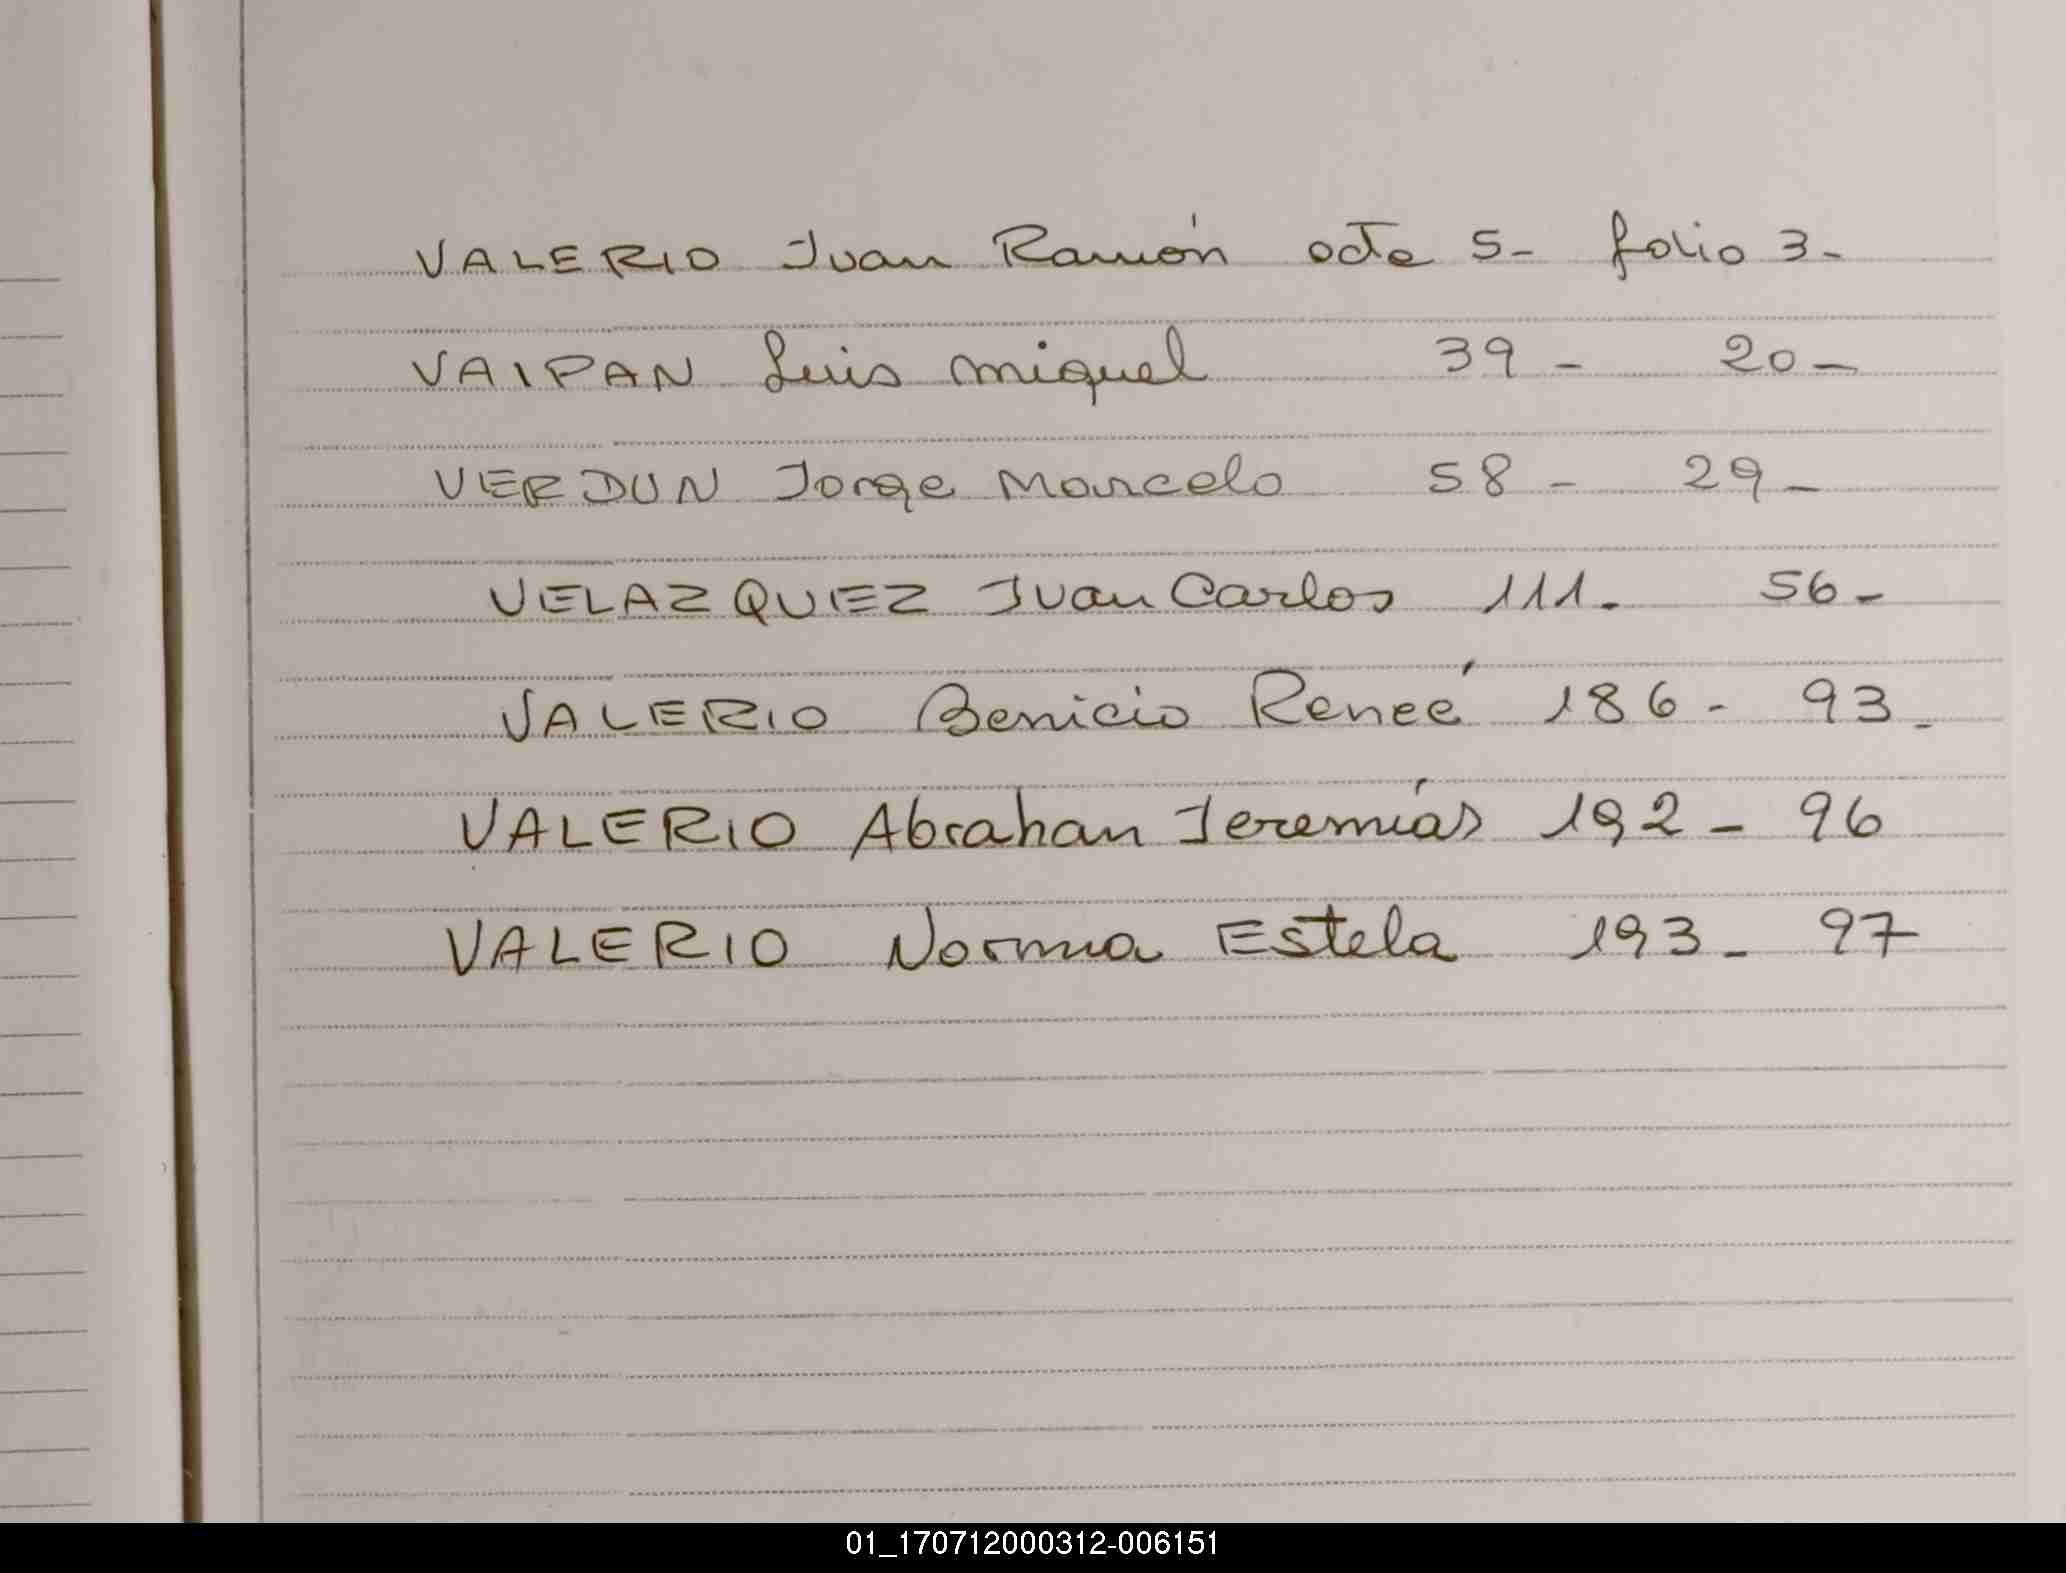 VALERIO Juan Ramón acta 5- folio 3-
VAIPAN Luis Miguel 39- 20-
VERDUN Jorge Marcelo 58- 29-
VELAZQUEZ Juan Carlos 111. 56-
VALERIO Benicio Reneé 186- 93-
VALERIO Abrahan Jeremías 192- 96
VALERIO Norma Estela 193- 97
01_170712000312-006151